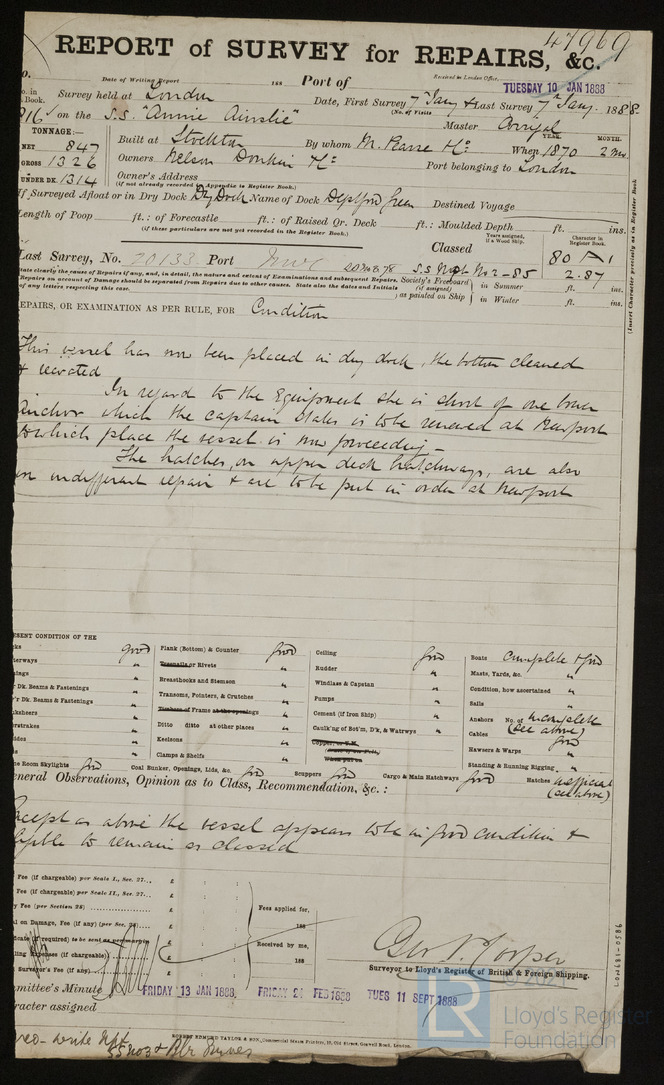 47969
REPORT of SURVEY for REPAIRS, &c.
Date of Writing Report 188 Port of Received in London Office, TUESDAY 10 JAN 1888
Survey held at London Date, First Survey 7th Jany & Last Survey 7th Jany. 1888.
(No. of Visits
816 on the S.S. "Annie Ainslie" Master
TONNAGE:— YEAR. MONTH.
NET 847 Built at Stockton By whom M. Pearse & Co When 1870 2 mo
GROSS 1326 Owners Nelson Donkin & Co Port belonging to London
UNDER DK. 1314 Owner's Address
(if not already recorded in Appendix to Register Book.)
If Surveyed Afloat or in Dry Dock Dry Dock Name of Dock Deptford Green Destined Voyage
Length of Poop ft.: of Forecastle ft.: of Raised Qr. Deck ft.: Moulded Depth ft. ins.
(if these particulars are not yet recorded in the Register Book.)
Years assigned, if a Wood Ship. Character in Register Book.
Classed 80 A 1
Last Survey, No. 20133 Port S.S. Npt No 2-85 2.87
State clearly the cause of Repairs if any, and, in detail, the nature and extent of Examinations and subsequent Repairs.
Repairs on account of Damage should be separated from Repairs due to other causes. State also the dates and Initials
of any letters respecting this case.
Society's Freeboard (if assigned) as painted on Ship
in Summer ft. ins.
in Winter ft. ins.
(Insert Character precisely as in Register Book
REPAIRS, OR EXAMINATION AS PER RULE, FOR Condition
This vessel has now been placed in dry dock, the bottom cleaned
& recoated
In regard to the Equipment she is short of one bower
anchor which the captain states is to be renewed at Newport
to which place the vessel is now proceeding—
The hatches, on upper deck hatchways, are also
in indifferent repair & are to be put in order at Newport
PRESENT CONDITION OF THE
good Plank (Bottom) & Counter good Ceiling good Boats complete & good
Treenails or Rivets " Rudder " Masts, Yards, &c. "
Breasthooks and Stemson " Windlass & Capstan " Condition, how ascertained "
Dk. Beams & Fastenings " Transoms, Pointers, & Crutches " Pumps " Sails "
Dk. Beams & Fastenings " Timbers of Frames at the openings " Cement (if Iron Ship) " Anchors No. of incomplete
(see above)
Ditto ditto at other places " Caulk'g of Bot'm, D'k, & Watrwys " Cables good
Keelsons " Copper, or Y.M. Hawsers & Warps "
Clamps & Shelfs " Standing & Running Rigging "
Room Skylights good Coal Bunker, Openings, Lids, &c. good Scuppers good Cargo & Main Hatchways good Hatches
(see above)
General Observations, Opinion as to Class, Recommendation, &c.:
Except as above the vessel appears to be in good condition &
eligible to remain as classed
Fee (if chargeable) per Scale I., Sec. 27... £
Fee (if chargeable) per Scale II., Sec. 27... £
Fee (per Section 28) £
on Damage, Fee (if any) (per Sec. 28)... £
(if required) to be sent as per margin £
Expenses (if chargeable) £
Surveyor's Fee (if any) £
Fees applied for,
188
Received by me,
188
Geo. N. Cooper
Surveyor to Lloyd's Register of British & Foreign Shipping.
Committee's Minute FRIDAY 13 JAN 1888 FRIDAY 24 FEB 1888 TUES 11 SEPT 1888
Character assigned
ROBERT EDMUND TAYLOR & SON, Commercial Steam Printers, 19, Old Street, Goswell Road, London.
LON681-0586
LR
Lloyd's Register
Foundation